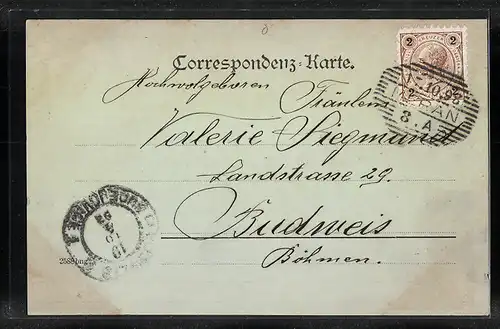 2 KREUZER 2
Correspondenz-Karte.
Hochwolgeboren
Fräulein
Valerie Siegmund
Landstrasse 29.
Budweis
Böhmen.
10.98
MERAN
8.A